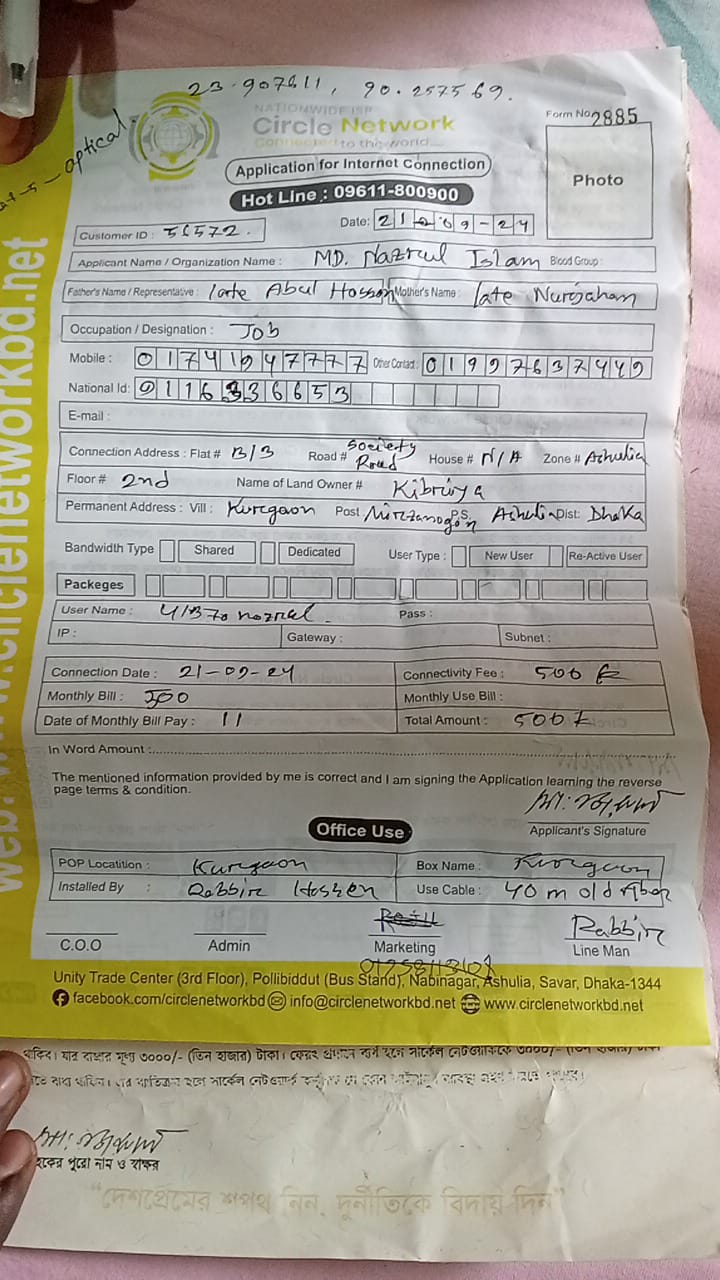 23.907611, 90.257569.
optical
NATIONWIDE ISP
Circle Network
Connected to the world....
Form No: 2885
Photo
Application for Internet Connection
Hot Line : 09611-800900
Date: 21-09-24
Customer ID : 56572.
Applicant Name / Organization Name : MD. Nazrul Islam Blood Group :
Father's Name / Representative : late Abul Hossen Mother's Name : late Nurjahan
Occupation / Designation : Job
Mobile : 01741947777 Other Contact : 01997637449
National Id: 9116336653
E-mail :
Connection Address : Flat # B/3 Road # Society Road House # N/A Zone # Ashulia
Floor # 2nd Name of Land Owner # Kibriya
Permanent Address : Vill : Kurgaon Post P.S. Ashulia Dist: Dhaka
Bandwidth Type Shared Dedicated User Type : New User Re-Active User
Packeges
User Name : Pass :
IP : Gateway : Subnet :
Connection Date : 21-09-24 Connectivity Fee : 500 tk
Monthly Bill : 500 Monthly Use Bill :
Date of Monthly Bill Pay : 11 Total Amount : 500 tk
In Word Amount :
The mentioned information provided by me is correct and I am signing the Application learning the reverse
page terms & condition.
Applicant's Signature
Office Use
POP Locatition : Kurgaon Box Name : Kurgaon
Installed By : Rabbir Hossen Use Cable : 40 m old fiber
Rabbir
C.O.O Admin Marketing Line Man
Unity Trade Center (3rd Floor), Pollibiddut (Bus Stand), Nabinagar, Ashulia, Savar, Dhaka-1344
facebook.com/circlenetworkbd info@circlenetworkbd.net www.circlenetworkbd.net
web: www.circlenetworkbd.net
থাকিব। যার বাজার মূল্য ৩০০০/- (তিন হাজার) টাকা।
হকের পুরো নাম ও স্বাক্ষর
“দেশপ্রেমের শপথ নিন, দুর্নীতিকে বিদায় দিন”